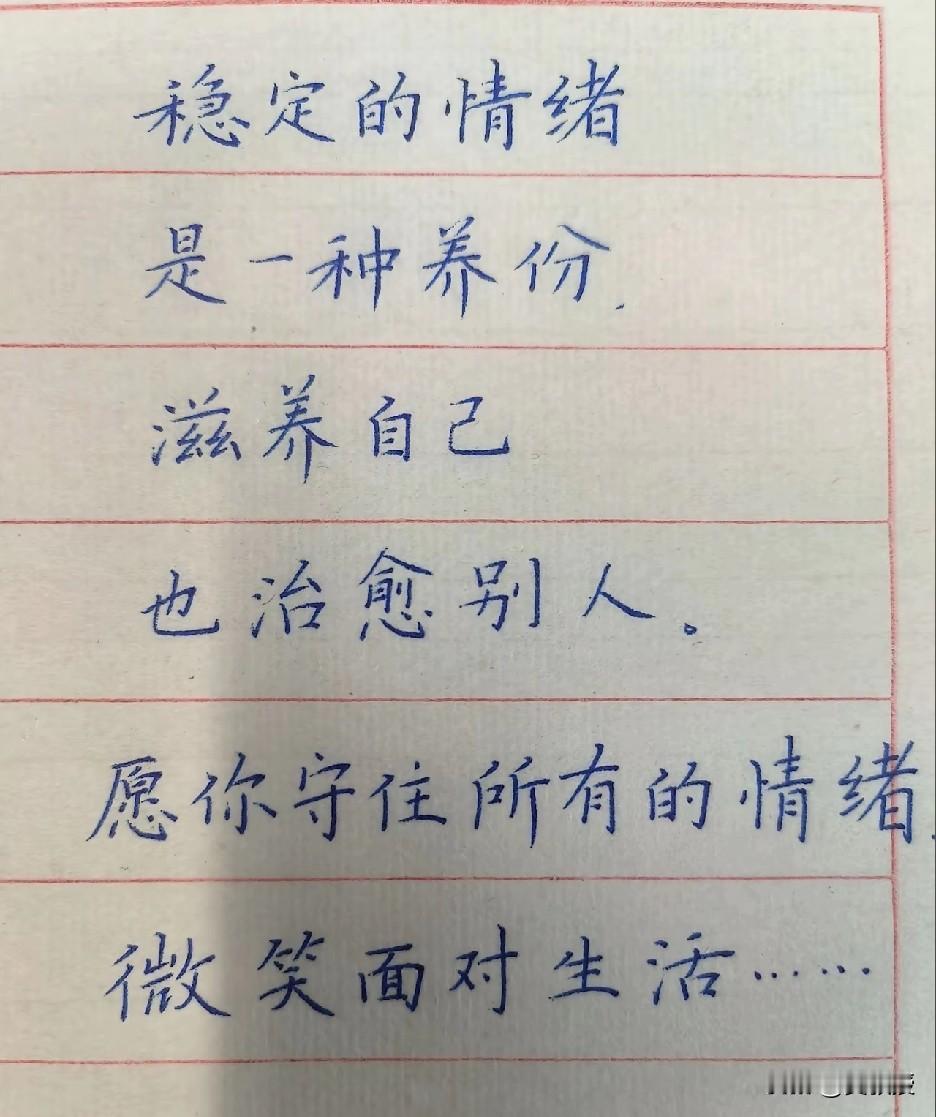 稳定的情绪
是一种养份,
滋养自己
也治愈别人。
愿你守住所有的情绪,
微笑面对生活……